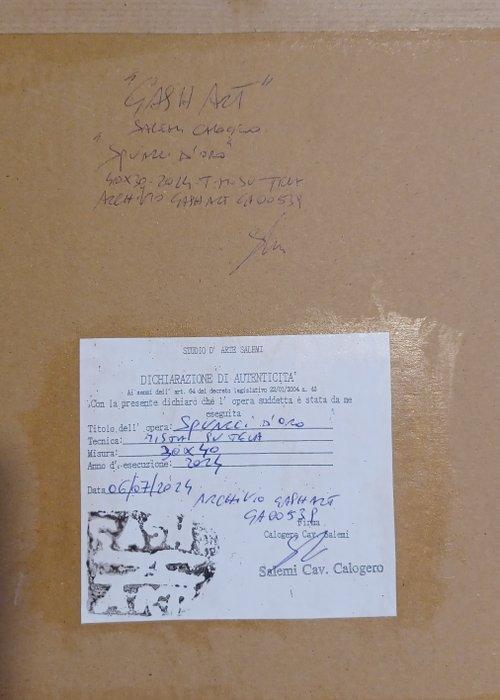 "GASH ART"
SALEMI CALOGERO
"SPRUZZI D'ORO"
40X30-2024-T.M SU TELA
ARCHIVIO GASHART GA0053P
STUDIO D' ARTE SALEMI
DICHIARAZIONE DI AUTENTICITA'
Ai sensi dell' art. 64 del decreto legislativo 22/01/2004 n. 42
Con la presente dichiaro che l' opera suddetta è stata da me
eseguita
Titolo dell' opera: SPRUZZI D'ORO
Tecnica: MISTA SU TELA
Misura: 30X40
Anno d' esecuzione: 2024
Data 06/07/2024
ARCHIVIO GASHART
GA0053P
Firma
Calogero Cav. Salemi
Salemi Cav. Calogero